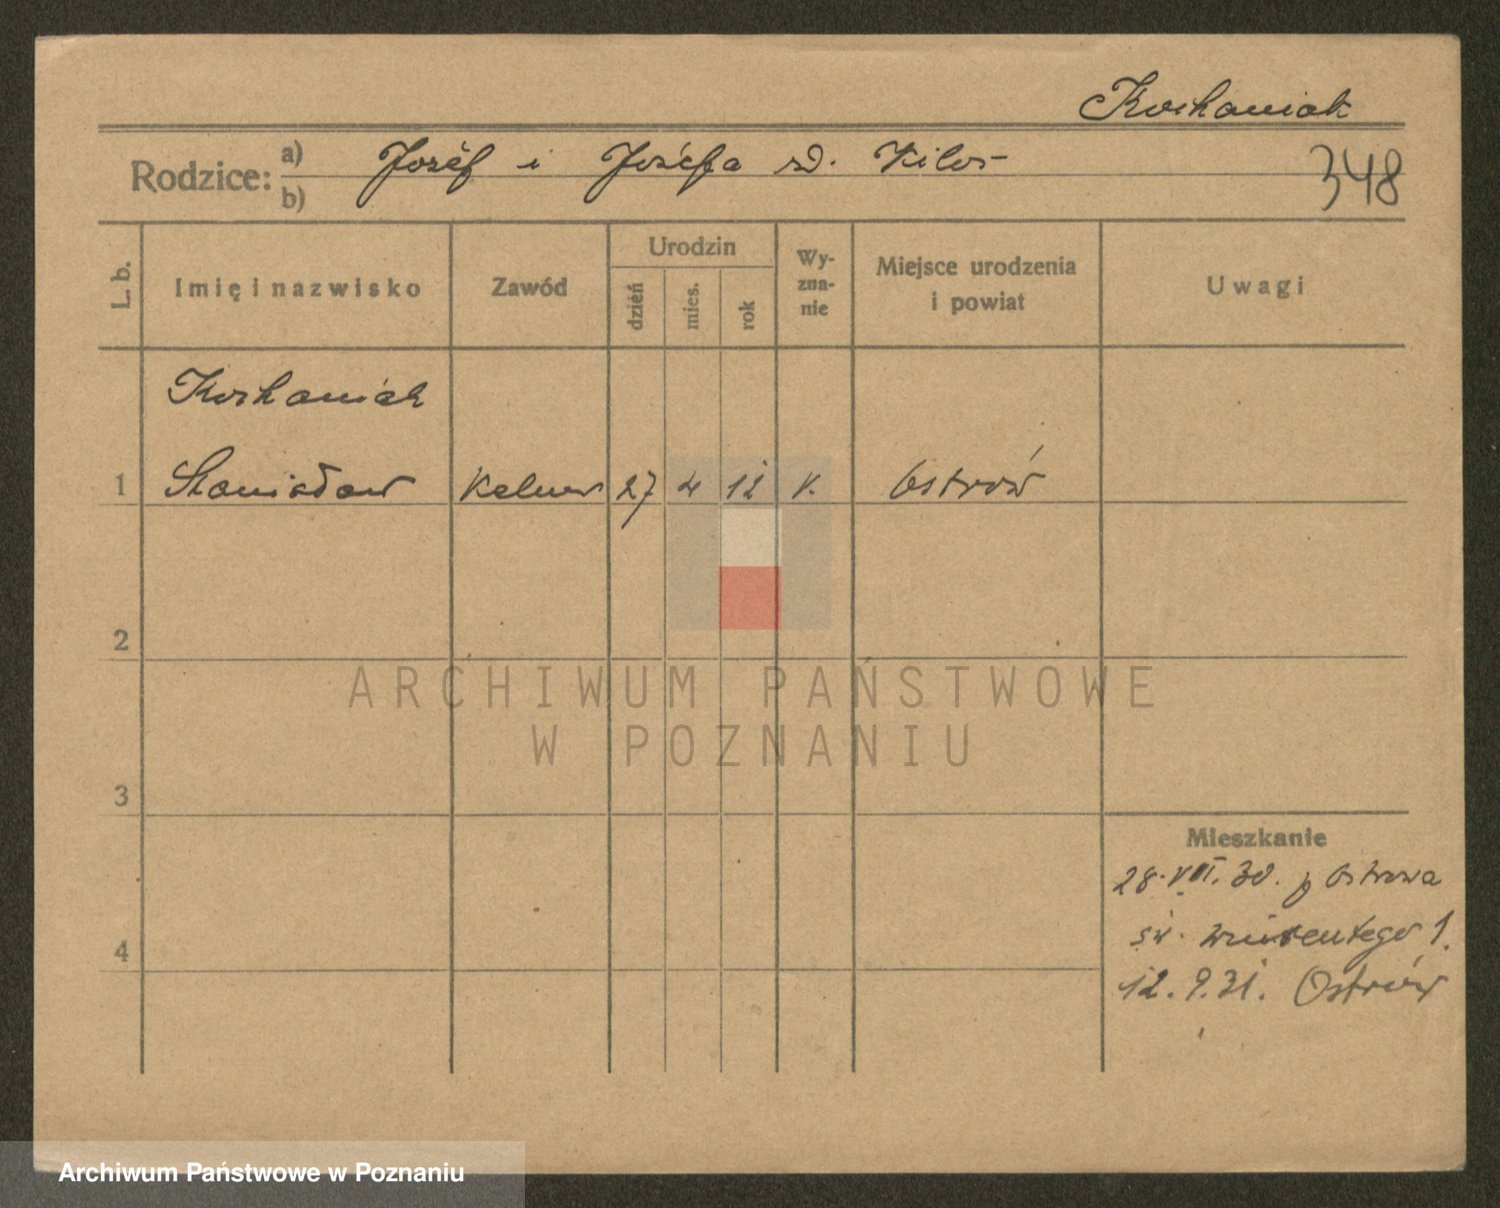 Kochaniak
Rodzice: a) Józef i Józefa zd. Kilos
b)
348
L. b. Imię i nazwisko Zawód Urodzin dzień mies. rok Wy-zna-nie Miejsce urodzenia i powiat Uwagi
Kochaniak
1 Stanisław Kelner 27 4 12 k. Ostrów
2
3
4
Mieszkanie
28.VIII.30. z Ostrowa
św. Wincentego 1.
12.9.31. Ostrów
ARCHIWUM PAŃSTWOWE
W POZNANIU
Archiwum Państwowe w Poznaniu